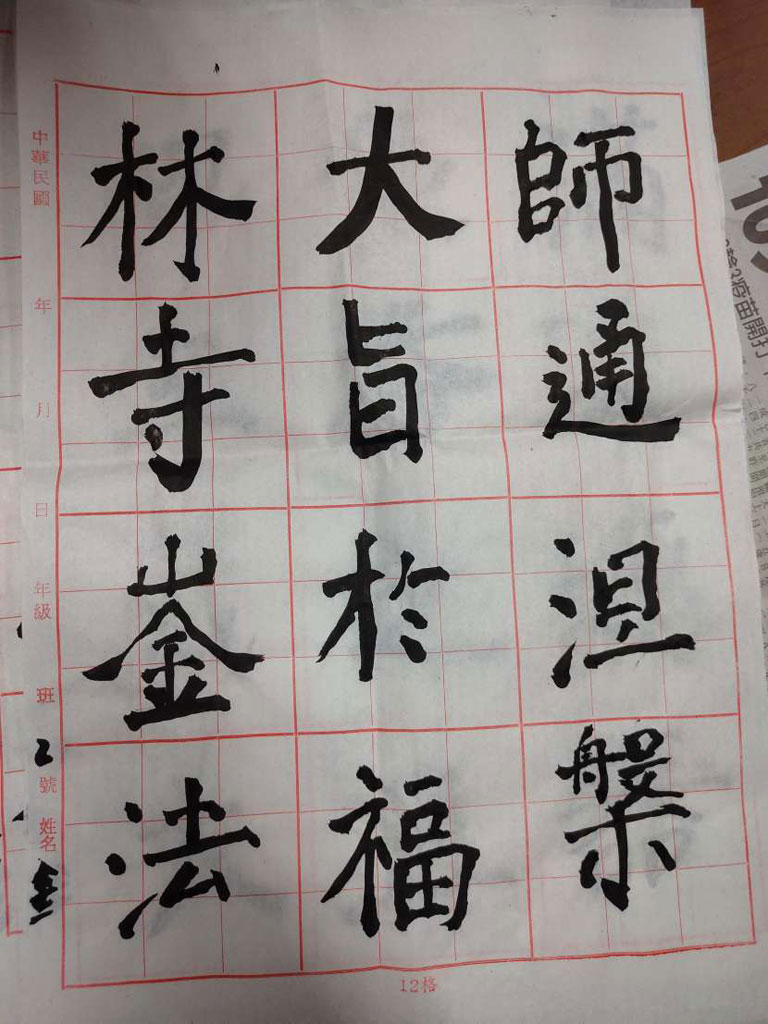 師通涅槃
大旨於福
林寺崟法
中華民國 年 月 日 年級 班 2 號 姓名
12格
疫苗開打